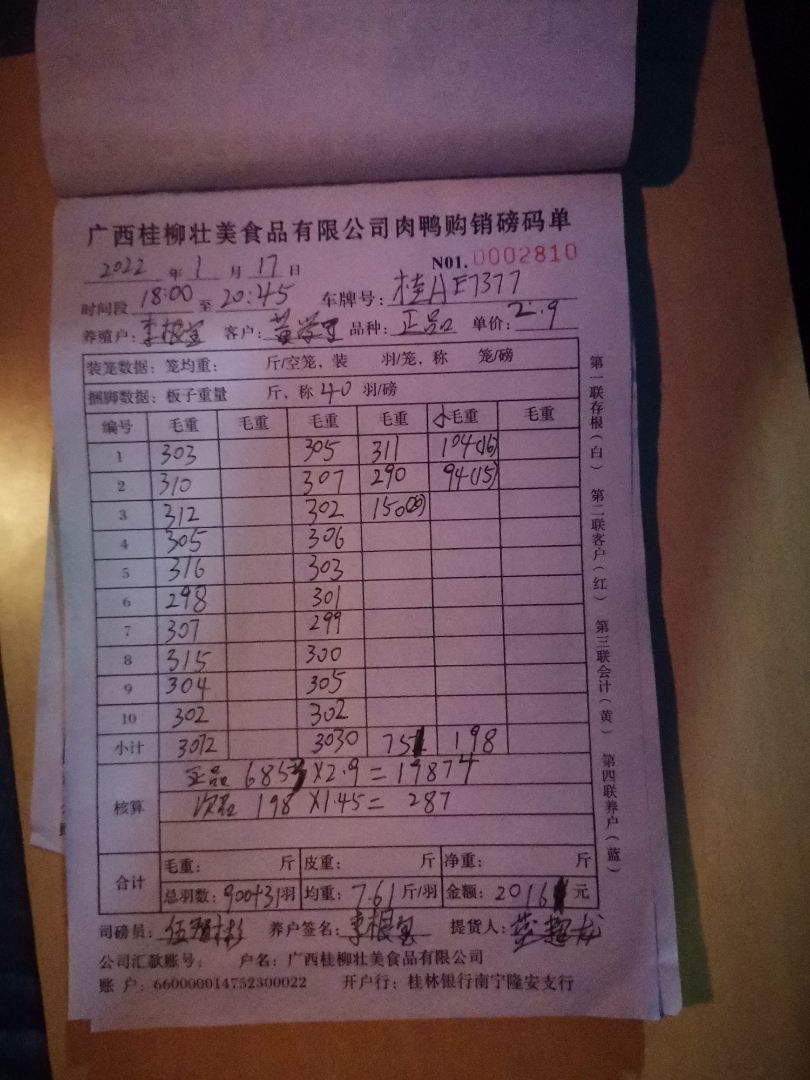 广西桂柳壮美食品有限公司肉鸭购销磅码单
N01.0002810
2022年1月17日
时间段18:00至20:45 车牌号:桂AE7377
养殖户:李根宝 客户: 品种:正品 单价:2.9
装笼数据:笼均重: 斤/空笼,装 羽/笼,称 笼/磅
捆脚数据:板子重量 斤,称40羽/磅
编号 毛重 毛重 毛重 毛重 小毛重 毛重
1 303 305 311 104(16)
2 310 307 290 94(15)
3 312 302 150(20)
4 305 306
5 316 303
6 298 301
7 307 299
8 315 300
9 304 305
10 302 302
小计 3072 3030 751 198
核算 正品 6853×2.9=19874
次品 198×1.45=287
合计 毛重: 斤 皮重: 斤 净重: 斤
总羽数:900+31羽 均重:7.61斤/羽 金额:20161元
司磅员: 养户签名:李根宝 提货人:
公司汇款账号: 户名:广西桂柳壮美食品有限公司
账户:660000014752300022 开户行:桂林银行南宁隆安支行
第一联存根(白) 第二联客户(红) 第三联会计(黄) 第四联养户(蓝)